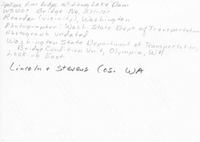 Spokane River Bridge at Long Lake Dam
WSDOT Bridge No. 231/101
Reardan (vicinity), Washington
Photographer: Wash. State Dept of Transportation
Photograph undated
Washington State Department of Transportation,
Bridge Condition Unit, Olympia, WA
Look at East
Lincoln & Stevens Cos. WA